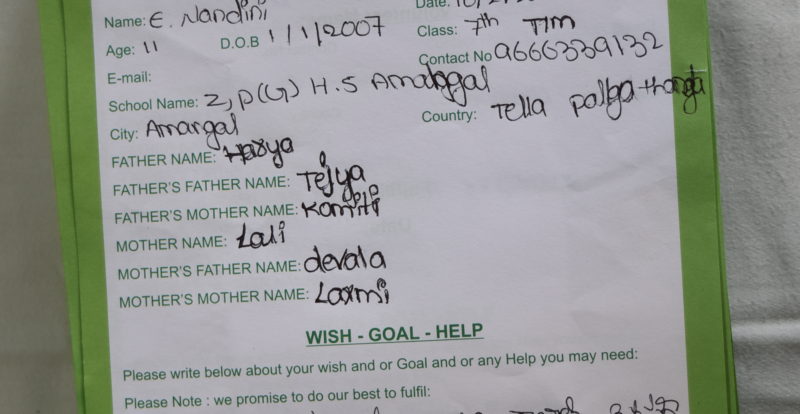 Name: E. Nandini Date:
Age: 11 D.O.B 1/1/2007 Class: 7th TIM
E-mail: Contact No 9666339132
School Name: Z, P(G) H.S
City: Amargal Country: Tella
FATHER NAME: Harya
FATHER'S FATHER NAME: Tejya
FATHER'S MOTHER NAME: Komiti
MOTHER NAME: Lali
MOTHER'S FATHER NAME: devala
MOTHER'S MOTHER NAME: Laxmi
WISH - GOAL - HELP
Please write below about your wish and or Goal and or any Help you may need:
Please Note : we promise to do our best to fulfil: